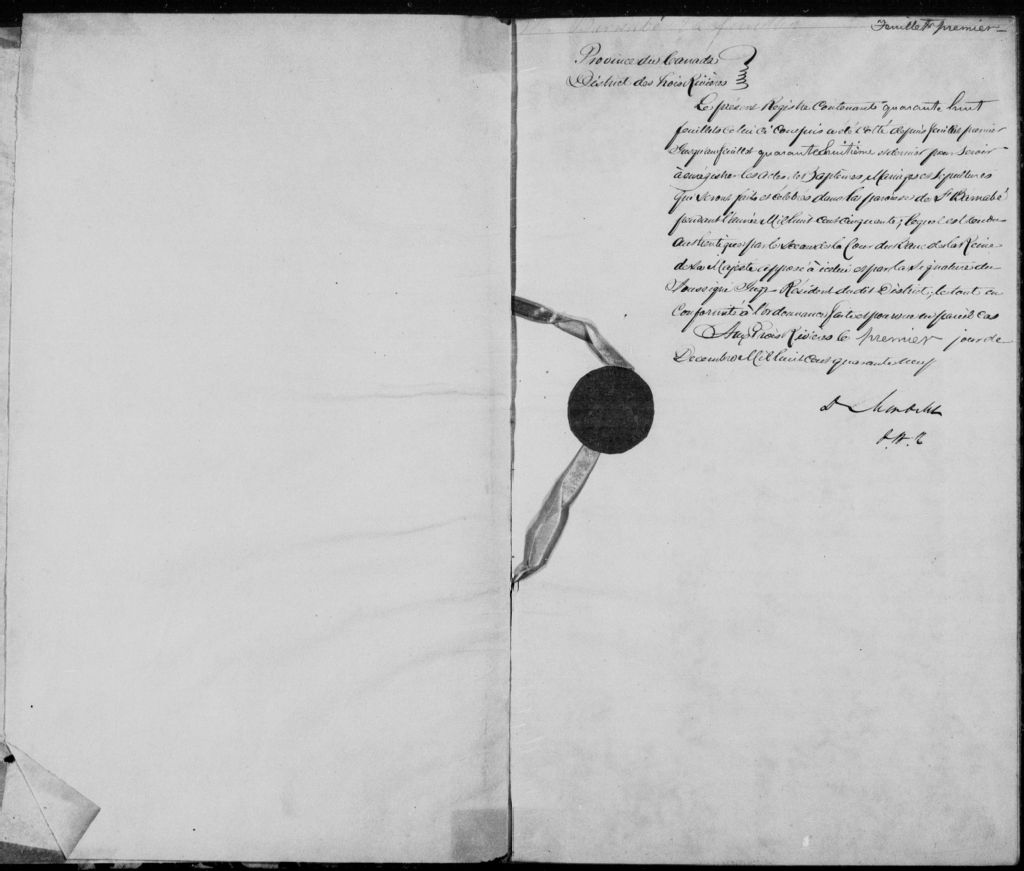 St Barnabé
Feuillet premier
Province du Canada
District des trois Rivières
Le présent Registre Contenant quarante huit
feuillets celui ci compris a été coté depuis feuillet premier
jusqu'au feuillet quarante huitième et dernier pour servir
à enregistrer les actes de Baptêmes, Mariages et Sépultures
qui seront faits et célébrés dans la paroisse de St Barnabé
pendant l'année Mil huit cent cinquante; lequel est rendu
Authentique par le Sceau de la Cour du Banc de la Reine
de Sa Majesté apposé à icelui et par la signature du
Soussigné Juge Résident du dit District, le tout en
Conformité à l'ordonnance faite et pourvue en pareil cas
Aux Trois Rivières le premier jour de
Decembre Mil huit cent quarante neuf
D Mondelet